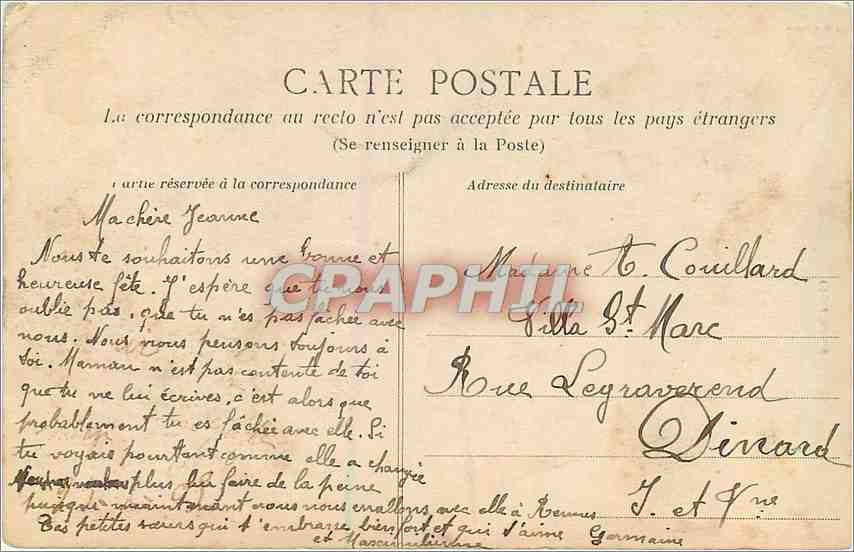 CARTE POSTALE
La correspondance au recto n'est pas acceptée par tous les pays étrangers
(Se renseigner à la Poste)
Partie réservée à la correspondance
Adresse du destinataire
Ma chère Jeanne
Nous te souhaitons une bonne et
heureuse fête. J'espère que tu nous
oublie pas, que tu n'es pas fâchée avec
nous. Nous nous pensons toujours à
toi. Maman n'est pas contente de toi
que tu ne lui écrives, c'est alors que
probablement tu es fâchée avec elle. Si
tu voyais pourtant comme elle a changée
plus lui faire de la peine
puisque maintenant nous nous en allons avec elle à Rennes
Tes petites sœurs qui t'embrasse bien fort et qui t'aime Germaine
et
Madame A. Couillard
Villa St Marc
Rue Legraverend
Dinard
I. et Vne
CPAPHIL